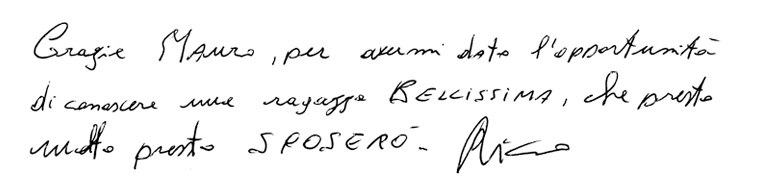 Grazie MAURO, per avermi dato l'opportunità
di conoscere una ragazza BELLISSIMA, che presto
molto presto SPOSERÒ-